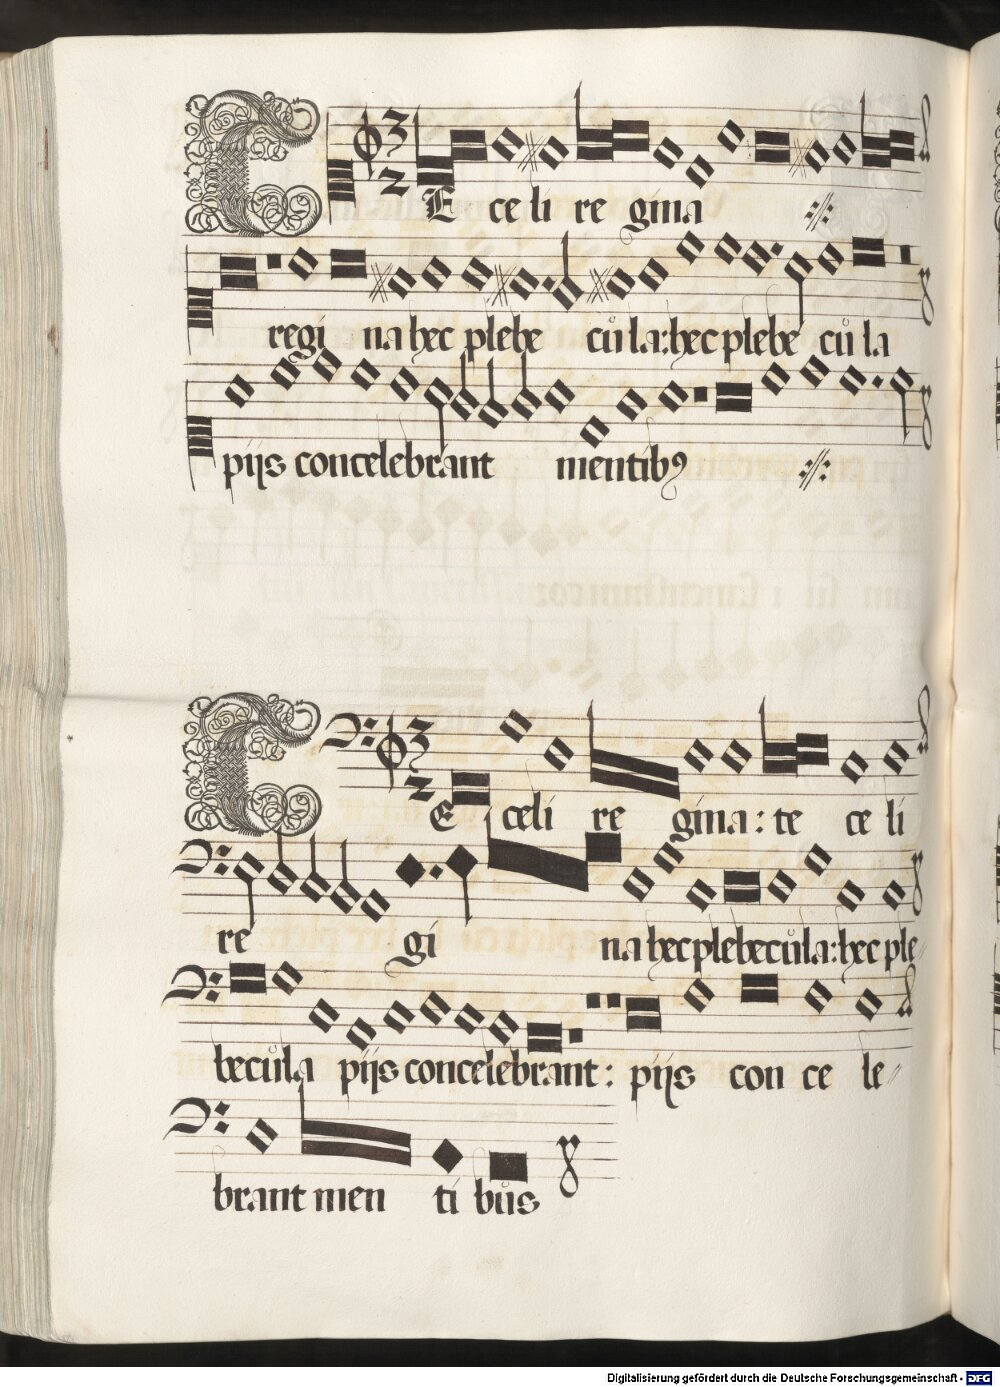 TE celi regina ·//·
regina hec plebe cůla: hec plebe cůla
pijs concelebrant mentibꝰ ·//·
TE celi regina: te celi
regina hec plebecůla: hec ple
becůla pijs concelebrant: pijs con ce le//
brant mentibůs
Digitalisierung gefördert durch die Deutsche Forschungsgemeinschaft - DFG